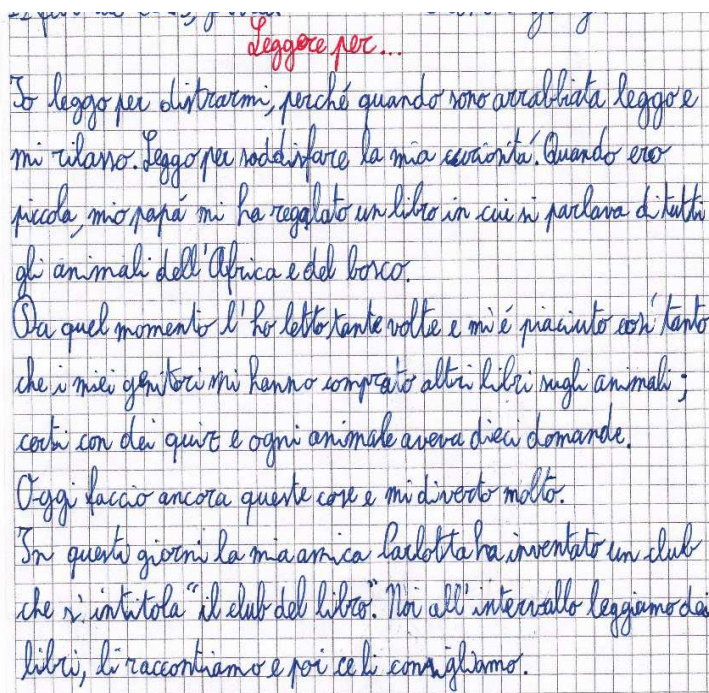 Leggere per...
Io leggo per distrarmi, perché quando sono arrabbiata leggo e
mi rilasso. Leggo per soddisfare la mia curiositá. Quando ero
piccola, mio papá mi ha regalato un libro in cui si parlava di tutti
gli animali dell'Africa e del bosco.
Da quel momento l'ho letto tante volte e mi é piaciuto cosí tanto
che i miei genitori mi hanno comprato altri libri sugli animali;
certi con dei quiz e ogni animale aveva dieci domande.
Oggi faccio ancora queste cose e mi diverto molto.
In questi giorni la mia amica Carlotta ha inventato un club
che s'intitola "il club del libro". Noi all'intervallo leggiamo dei
libri, li raccontiamo e poi ce li consigliamo.